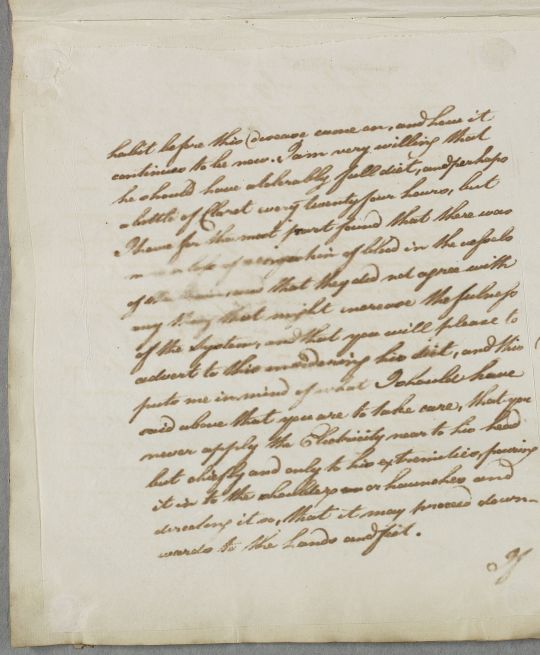 habit before this Disease came on, and how it
continues to be now. I am very willing that
he should have a tolerably full diet, and perhaps
a bottle of Claret every twenty four hours, but
I have for the most part found that there was
of blood in the vessels
of the and that they did not agree with
any thing that might increase the fulness
of the System, and that you will please to
advert to this in ordering his diet, and this
puts me in mind of what I should have
said above that you are to take care, that you
never apply the Electricity near to his head
but chiefly and only to his extremities, pouring
it in to the shoulders or haunches and
directing it so, that it may proceed down-
wards to the hands and feet.